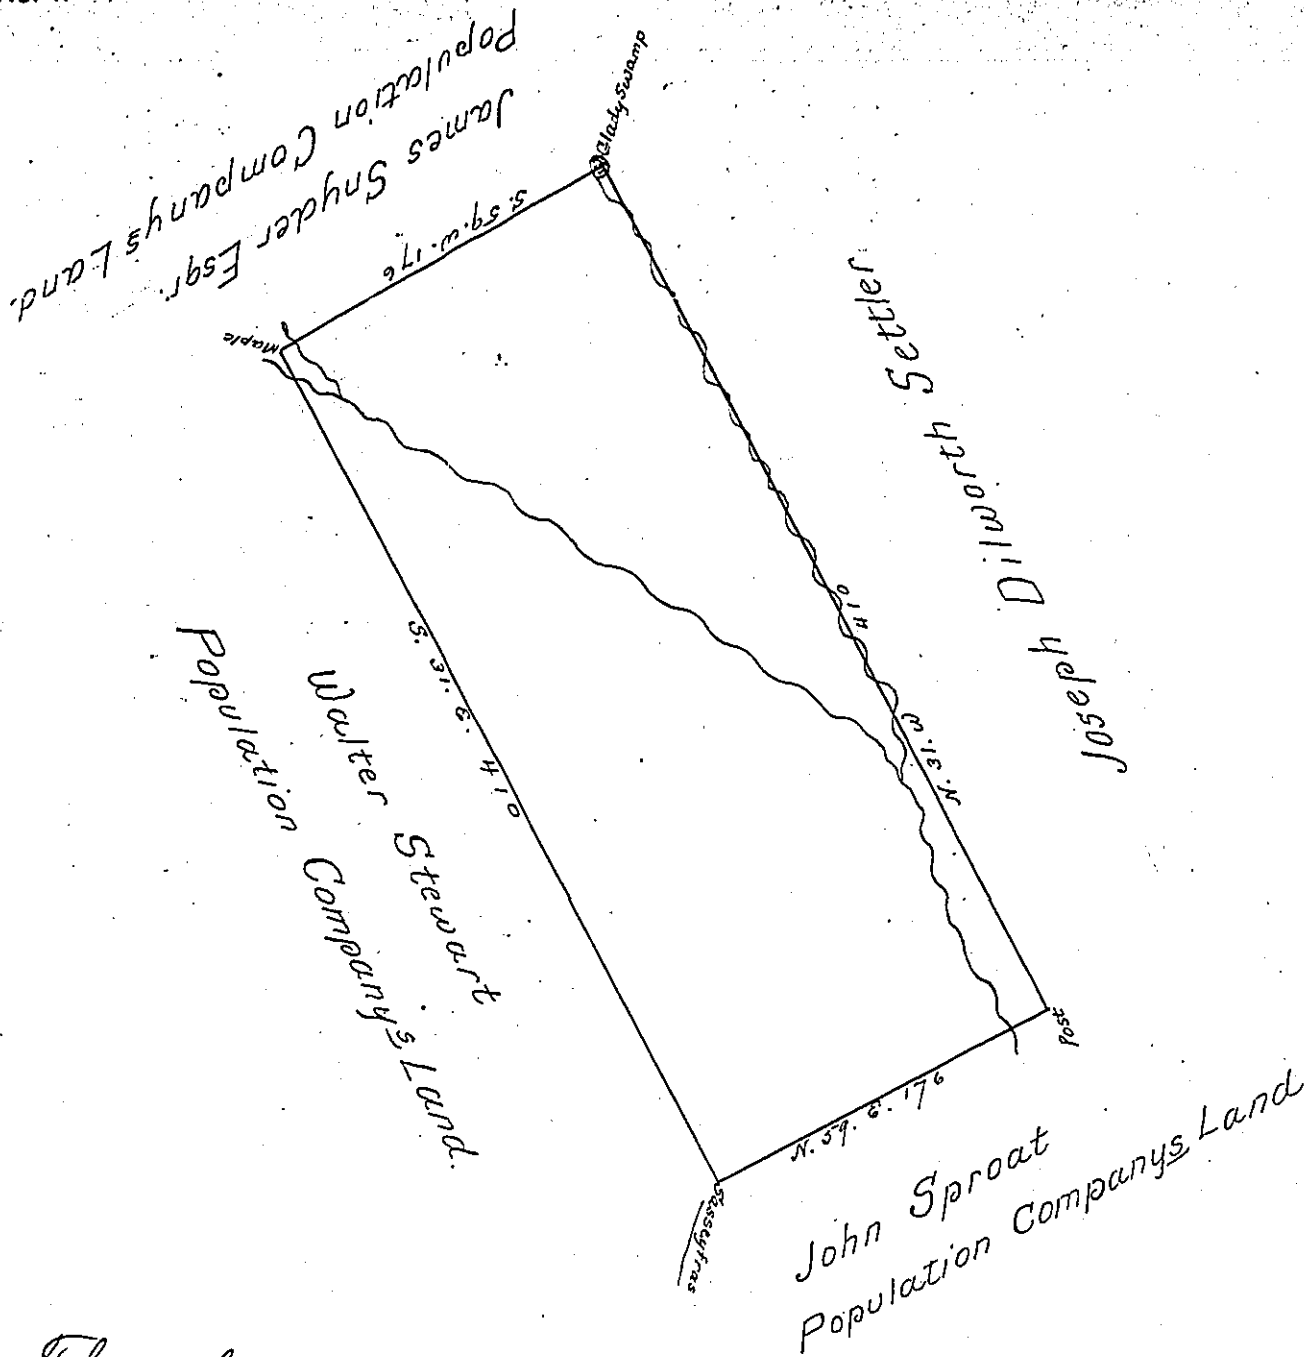 Population Companys Land.
James Snyder Esqr.
Glady Swamp
S. 59. W. 176
Maple
Joseph Dilworth Settler
N. 31. W 410
S. 31. E. 410
Walter Stewart
Population Companys Land.
Post
N. 59. E. 176
Sasseyfras
John Sproat
Population Companys Land